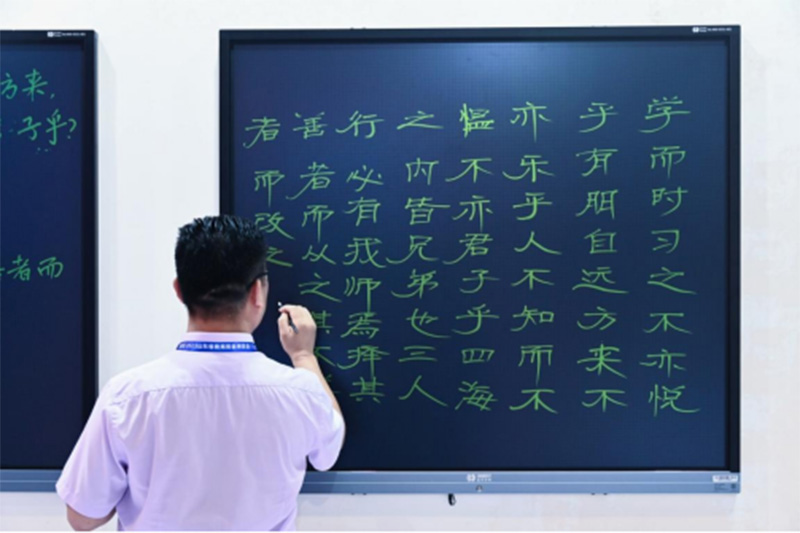 学而时习之不亦悦
乎有朋自远方来不
亦乐乎人不知而不
愠不亦君子乎四海
之内皆兄弟也三人
行必有我师焉择其
善者而从之其不
者而改之
方来，
子乎？
者而